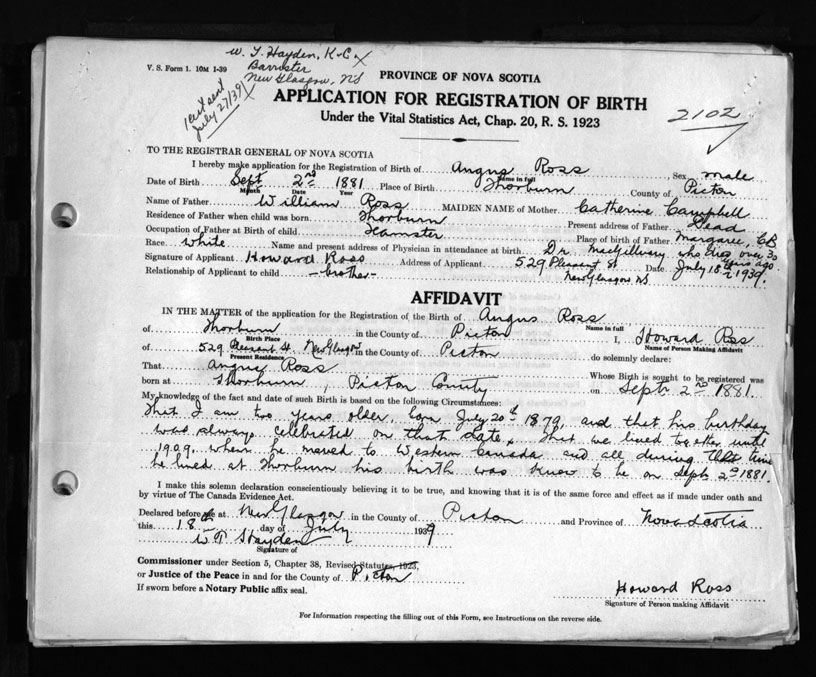 W. T. Hayden, K-C
Barrister
New Glasgow, NS
V. S. Form 1. 10M 1-39
1 cert sent
July 27/39
PROVINCE OF NOVA SCOTIA
APPLICATION FOR REGISTRATION OF BIRTH
2102
Under the Vital Statistics Act, Chap. 20, R. S. 1923
TO THE REGISTRAR GENERAL OF NOVA SCOTIA
I hereby make application for the Registration of Birth of Angus Ross Sex male
Name in full
Date of Birth Sept 2nd 1881 Place of Birth Thorburn County of Picton
Month Date Year
Name of Father William Ross MAIDEN NAME of Mother Catherine Campbell
Residence of Father when child was born Thorburn Present address of Father Dead
Occupation of Father at Birth of child Teamster Place of birth of Father Margaree, CB
Race white Name and present address of Physician in attendance at birth Dr MacGillivery who died over 30 years ago
Signature of Applicant Howard Ross Address of Applicant 529 Pleasant St Date July 18th 1939.
Relationship of Applicant to child -brother- New Glasgow NS
AFFIDAVIT
IN THE MATTER of the application for the Registration of the Birth of Angus Ross
Name in full
of Thorburn in the County of Picton I, Howard Ross
Birth Place Name of Person Making Affidavit
of 529 Pleasant St. New Glasgow in the County of Picton do solemnly declare:
Present Residence
That Angus Ross Whose Birth is sought to be registered was
born at Thorburn, Picton County on Septr 2nd 1881.
My knowledge of the fact and date of such Birth is based on the following Circumstances:
That I am two years older, born July 20th 1879, and that his birthday
was always celebrated on that date, that we lived together until
1909. when he moved to Western Canada and all during that time
he lived at Thorburn his birth was know to be on Septr 2nd 1881.
I make this solemn declaration conscientiously believing it to be true, and knowing that it is of the same force and effect as if made under oath and
by virtue of The Canada Evidence Act.
Declared before me at New Glasgow in the County of Picton and Province of Nova Scotia
this 18th day of July 1939
W T Hayden
Signature of
Commissioner under Section 5, Chapter 38, Revised Statutes, 1923,
or Justice of the Peace in and for the County of Picton
If sworn before a Notary Public affix seal.
Howard Ross
Signature of Person making Affidavit
For Information respecting the filling out of this Form, see Instructions on the reverse side.